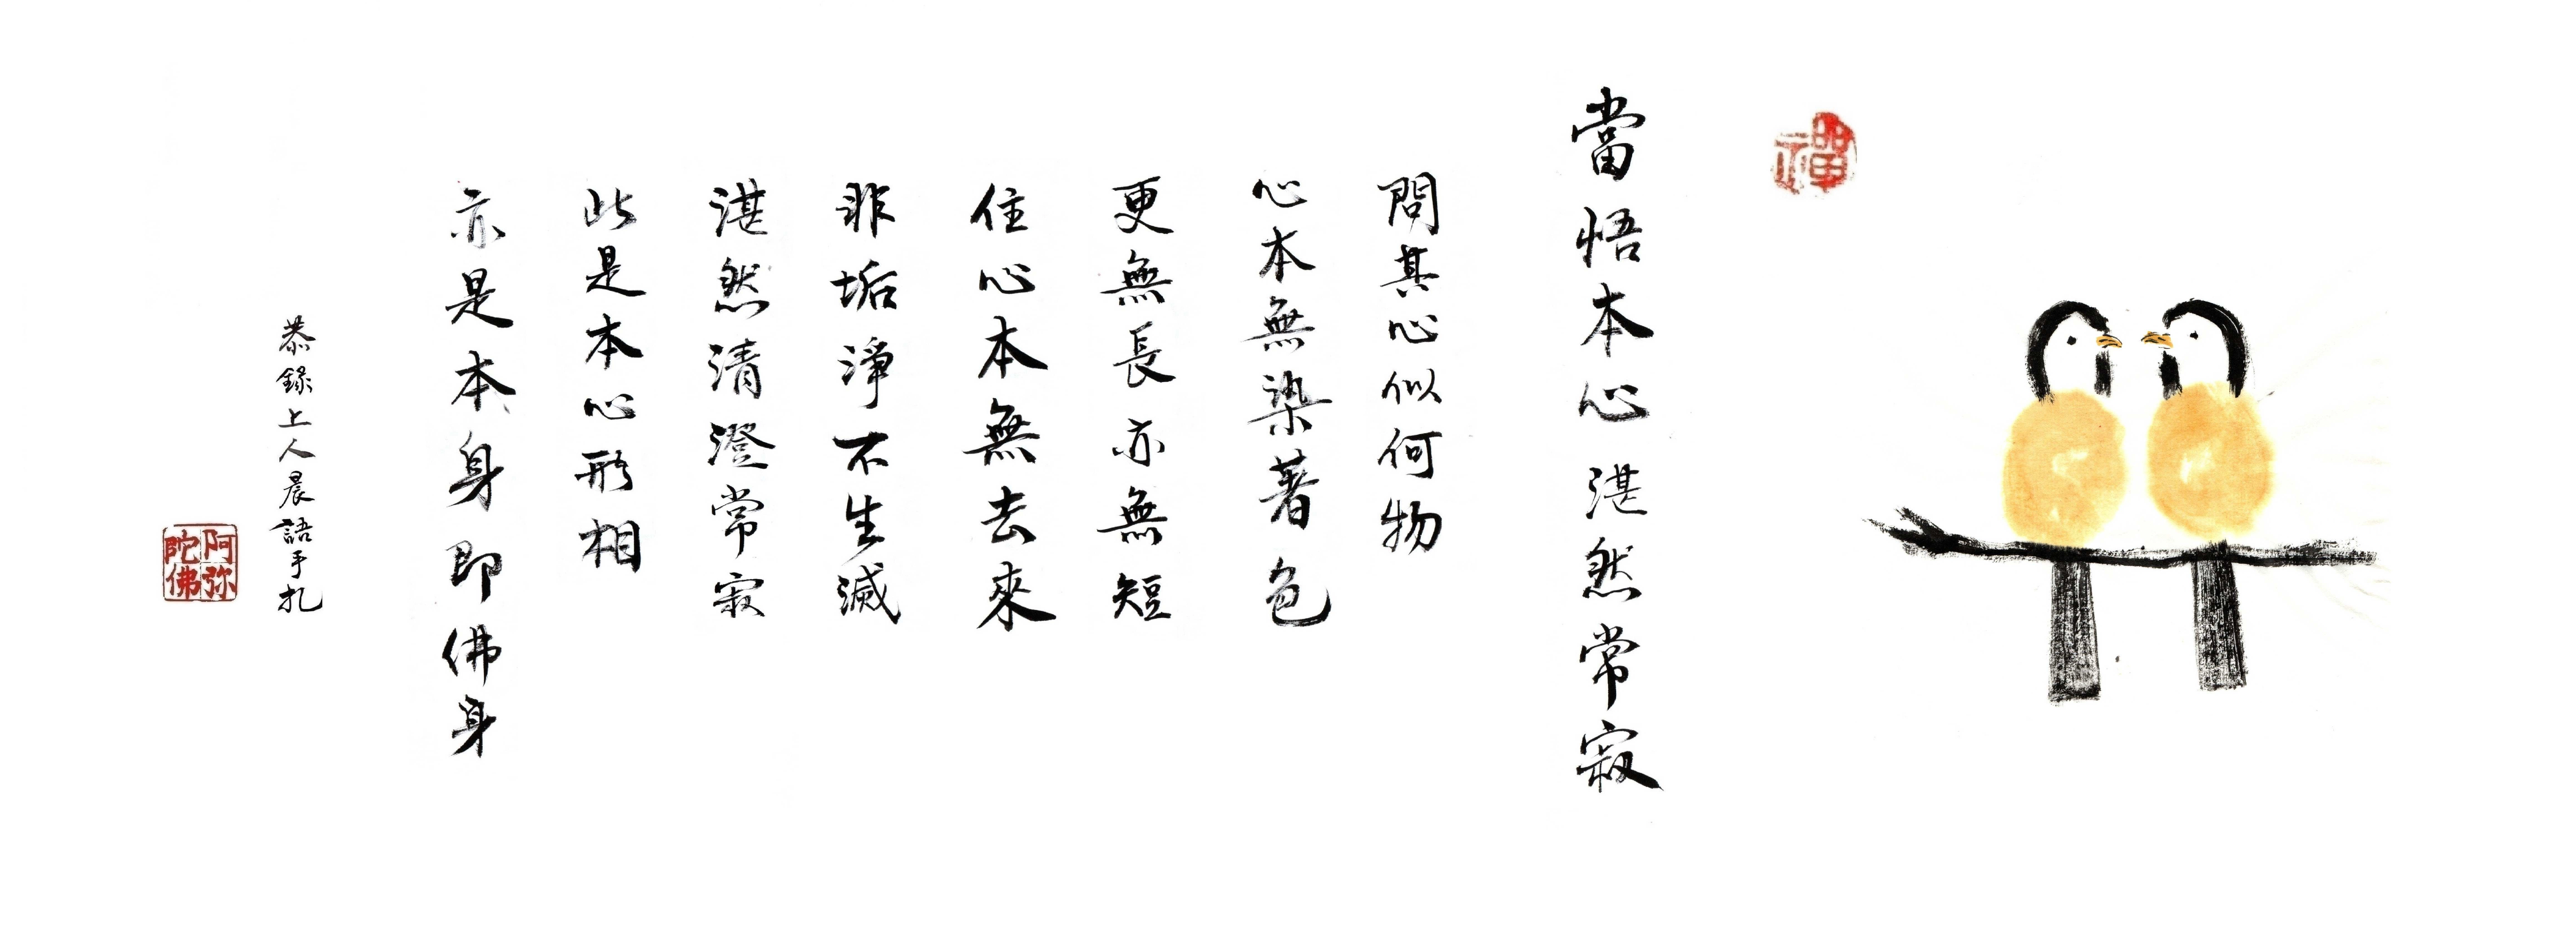 禪
當悟本心湛然常寂
問其心似何物
心本無染著色
更無長亦無短
住心本無去來
非垢淨不生滅
湛然清澄常寂
此是本心形相
亦是本身即佛身
恭錄上人晨語手扎
阿弥
陀佛